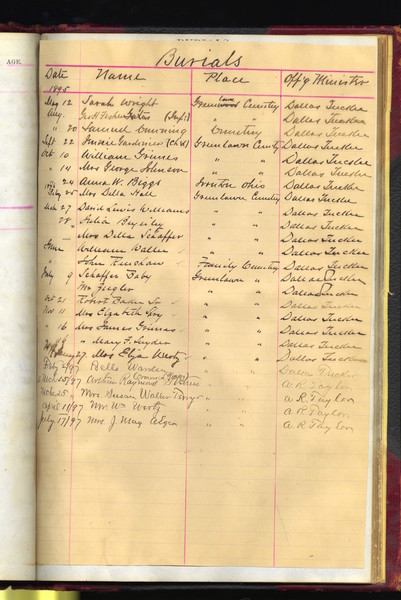 AGE.
Burials
Date Name Place Off'g Minister
1895
May 12 Sarah Wright Greenlawn Cemetery Dallas Tucker
Aug. " " Dallas Tucker
" 20 Samuel Cemetery Dallas Tucker
Sept 22 Gardiner (child) Greenlawn Cemetery Dallas Tucker
Oct 10 William Grimes " " Dallas Tucker
" 14 Mrs George Johnson " " Dallas Tucker
" 24 Anna W. Biggs Ironton Ohio Dallas Tucker
25 Mrs Della Hall Greenlawn Cemetery Dallas Tucker
27 David Lewis Williams " " Dallas Tucker
28 Julia Beyerley " " Dallas Tucker
— Mrs Della Schaffer " " Dallas Tucker
June William Waller " " Dallas Tucker
" John Family Cemetery Dallas Tucker
July 9 Schaffer Baby Greenlawn " Dallas Tucker
Mr Ziegler " " Dallas Tucker
Oct 21 Robert Baker Sr " " Dallas Tucker
Nov 11 Mrs Elizabeth " " Dallas Tucker
" 16 Mrs James Grimes " " Dallas Tucker
Mary F. Snyder " " Dallas Tucker
27 Mrs Eliza Wertz " " Dallas Tucker
Belle Warden " " Dallas Tucker
March 25/97 Arthur Raymond " " A R Taylor
March 25 " Mrs. Susan Waller Terry " " A R Taylor
April 11/97 Mr. Wm Wertz " " A R Taylor
July 17/97 Mrs. J. May " " A R Taylor